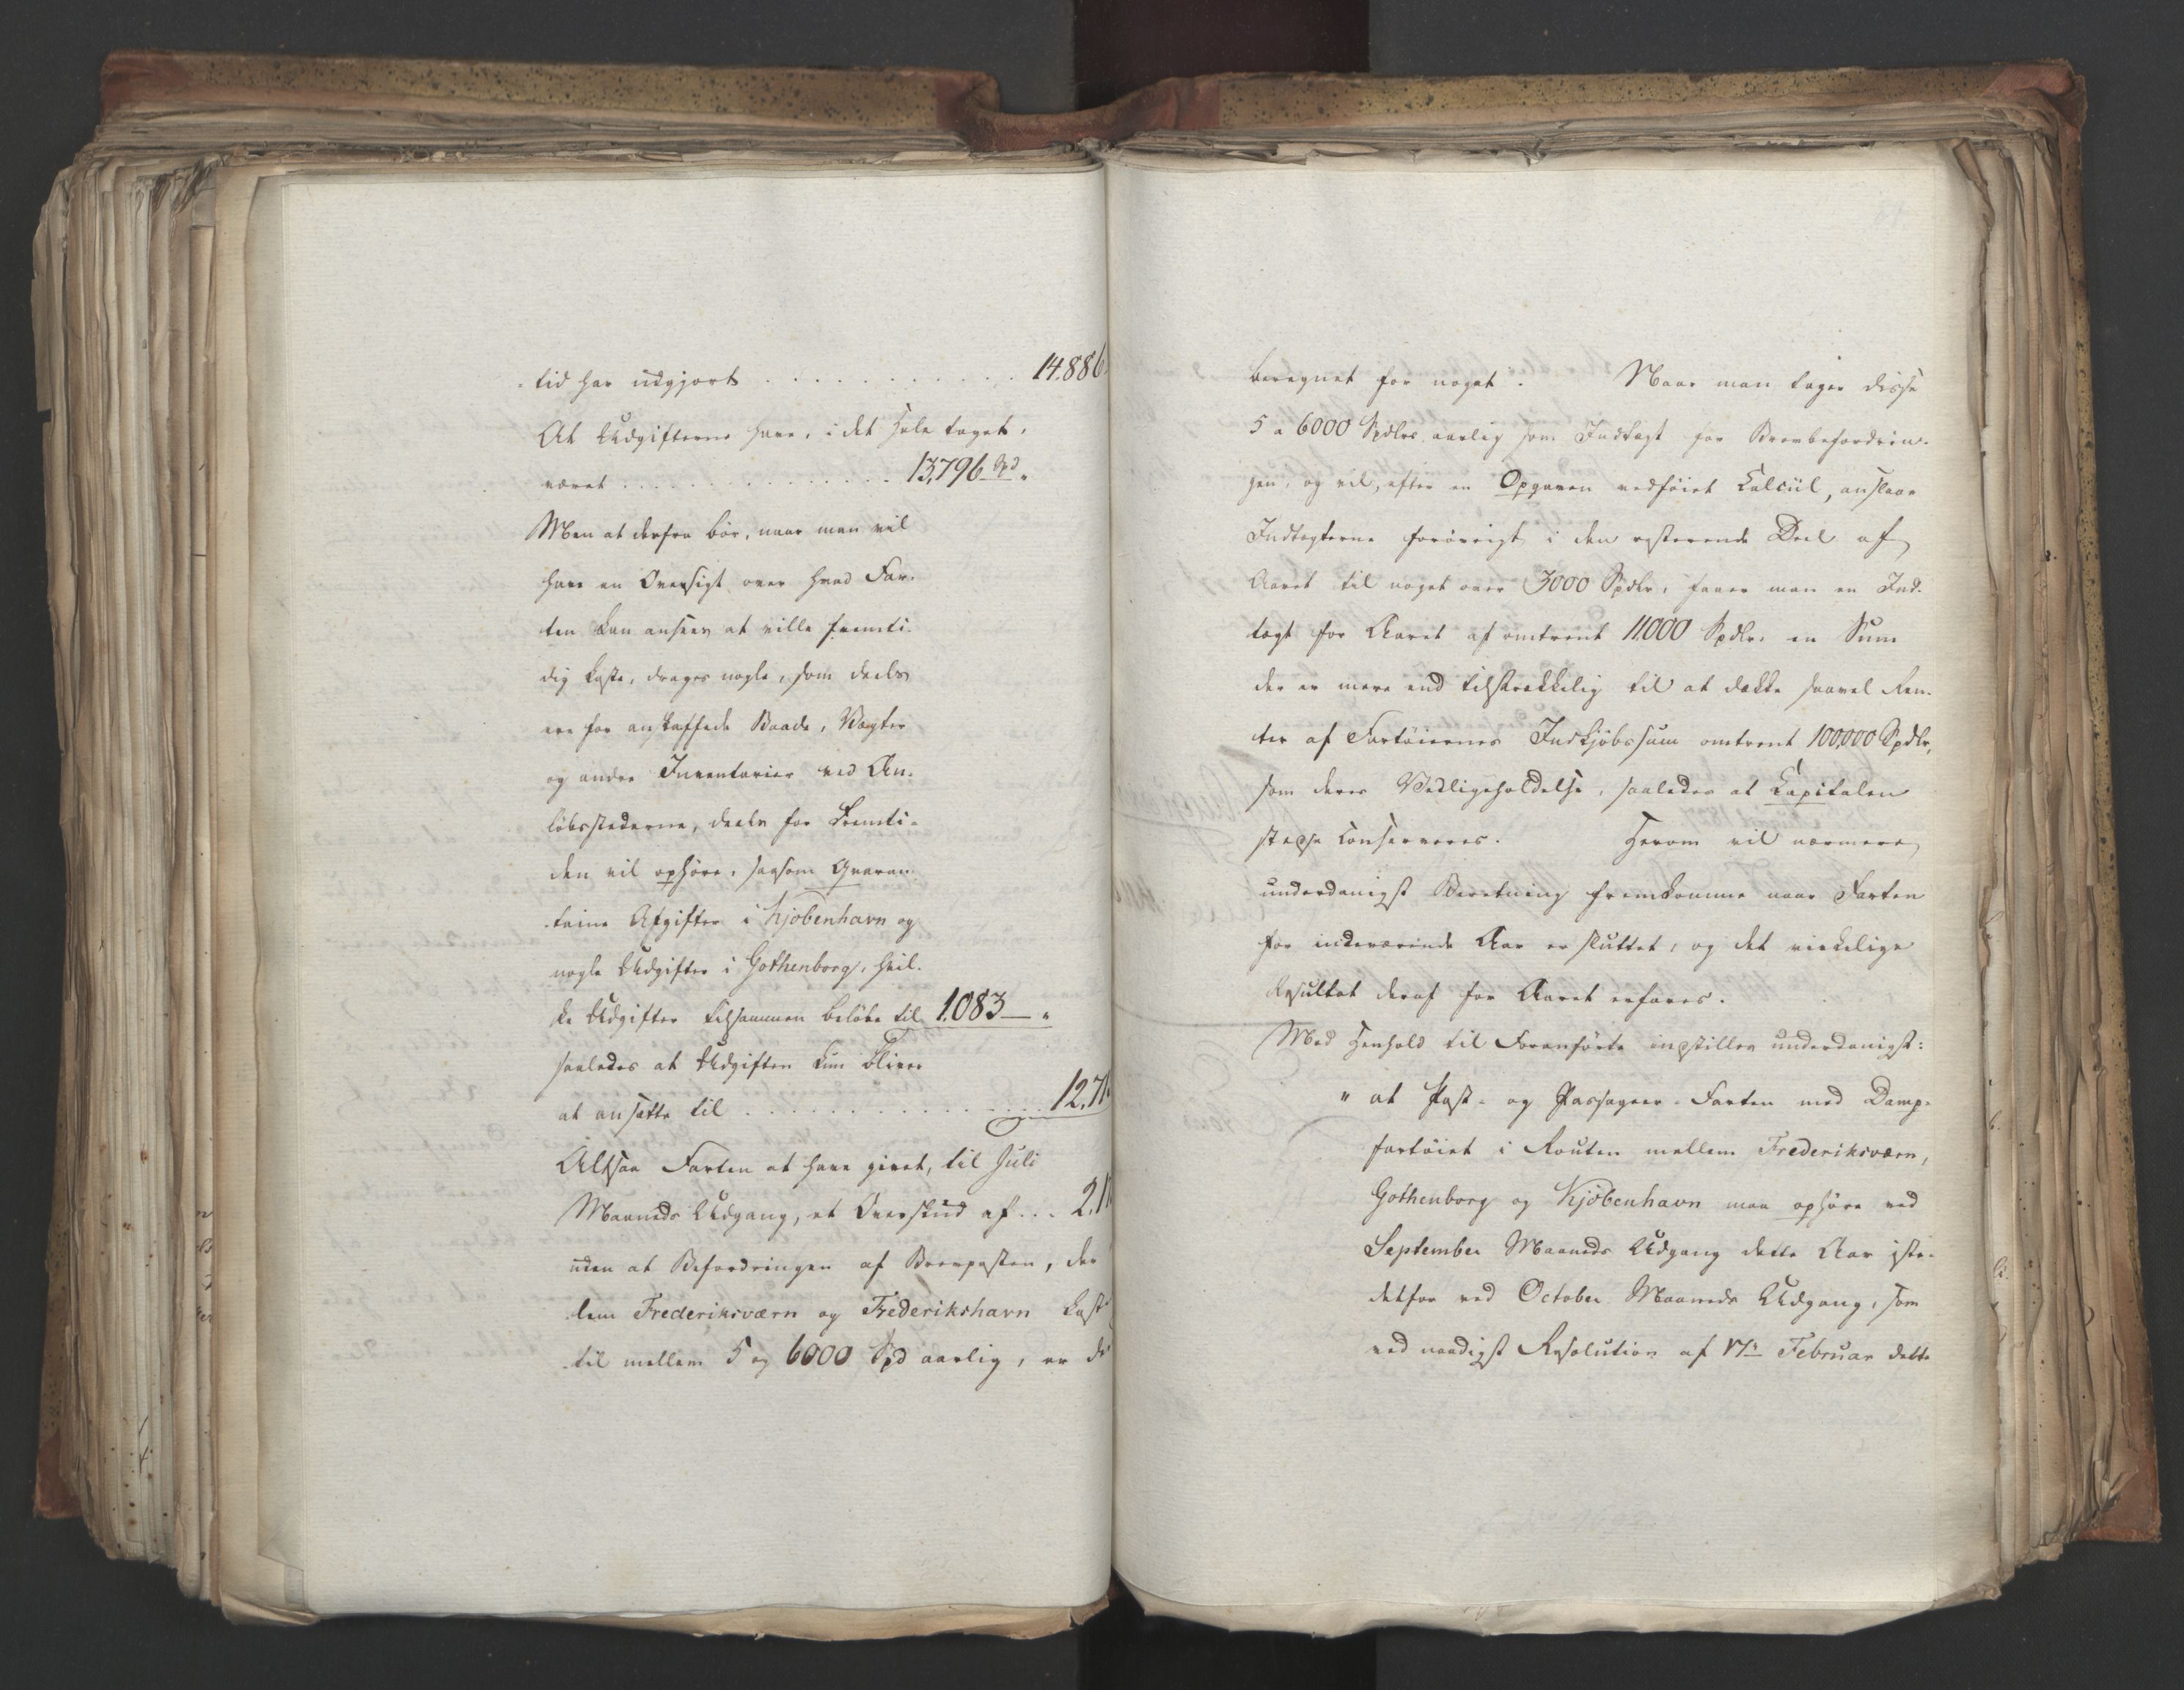 tid har udgjort . . . . . . . . . . . 14.886
At Udgifterne have, i det Hele taget,
været . . . . . . . . . . . . . . . 13,796 Spd "
Men at derfra bør, naar man vil
have en Oversigt over hvad Far-
ten kan ansees at ville fremti-
dig koste, drages nogle, som deels
ere for anskaffede Baade, Vagter
og andre Inventarier ved An-
løbsstederne, deels for Fremti-
den vil ophøre, saasom Qvaran-
taine Afgifter i Kjøbenhavn og
nogle Udgifter i Gothenborg, hvil-
ke Udgifter tilsammen beløbe til 1.083 — "
saaledes at Udgiften kun bliver
at ansætte til . . . . . . . . . . . . . . 12,71
Altsaa Farten at have givet, til Juli
Maaneds Udgang, et Overskud af . . . 2,1
uden at Befordringen af Brevposten, der
lem Frederiksværn og Frederikshavn kost
til mellem 5 og 6000 Spd aarlig, er
beregnet for noget. Naar man tager disse
5 a 6000 Spdlr aarlig som Indtægt for Brevbefordrin-
gen, og vil, efter en Opgaven vedføiet Calcül, anslaae
Indtægterne forøvrigt i den resterende Deel af
Aaret til noget over 3000 Spdlr, faaer man en Ind-
tægt for Aaret af omtrent 11.000 Spdlr, en Sum
der er mere end tilstrækkelig til at dække saavel Ren-
ter af Fartøiernes Indkjøbssum omtrent 100,000 Spdlr,
som deres Vedligeholdelse, saaledes at Kapitalen
stedse conserveres. Herom vil nærmere
underdanigst Beretning fremkomme naar Farten
for indeværende Aar er sluttet, og det virkelige
Resultat deraf for Aaret erfares.
Med Henhold til Foranførte inpstilles underdanigst:
" at Post- og Passageer-Farten med Damp-
fartøiet i Routen mellem Frederiksværn,
Gothenborg og Kjøbenhavn maa ophøre ved
September Maaneds Udgang dette Aar iste-
detfor ved October Maaneds Udgang, som
ved naadigst Resolution af 17de Februar dette